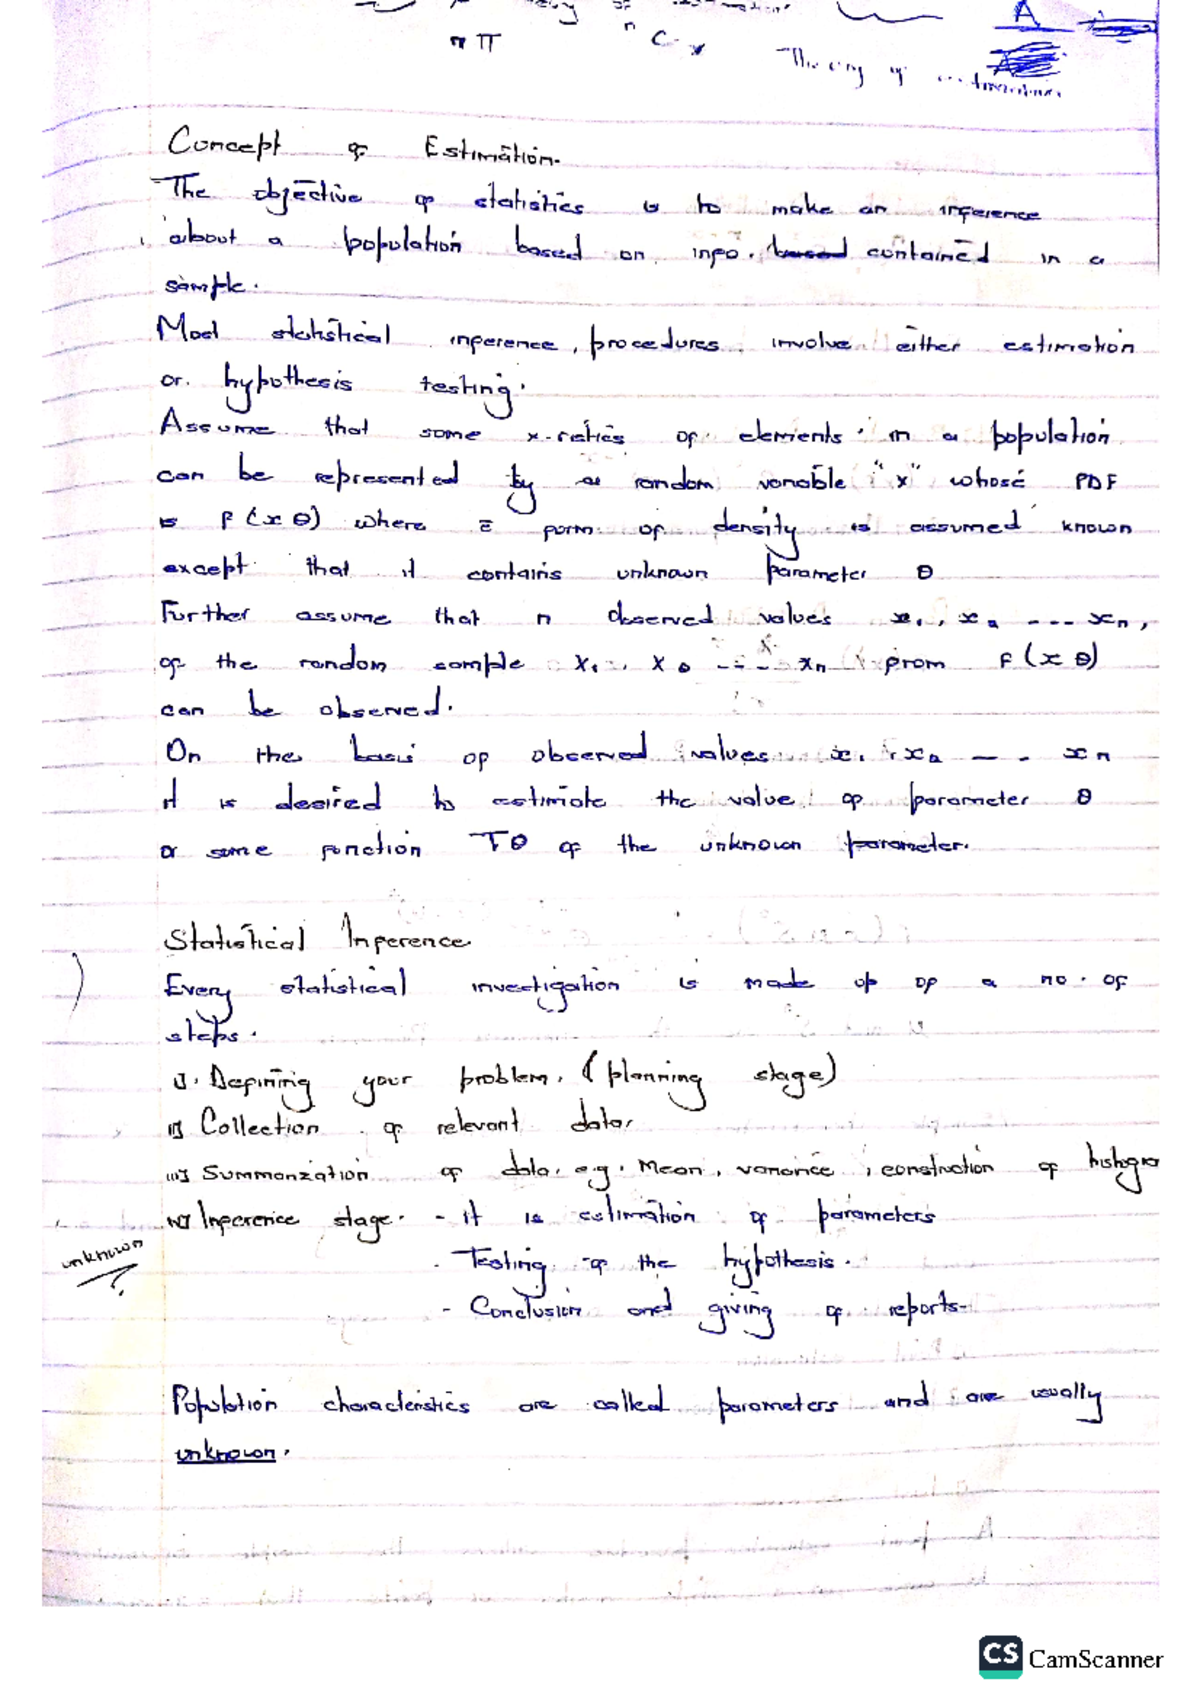 A
π
n C x
Theory of estimation
Concept of Estimation.
The objective of statistics is to make an inference
about a population based on info. based contained in a
sample.
Most statistical inference, procedures involve either estimation
or hypothesis testing.
Assume that some x-retics of elements in a population
can be represented by a random variable "x" whose PDF
is f(x θ) where form of density is assumed known
except that it contains unknown parameter θ
Further assume that n observed values x₁, x₂ --- xn,
of the random sample X₁, X₂ --- Xn from f(x θ)
can be observed.
On the basis of observed values x₁, x₂ --- xn
it is desired to estimate the value of parameter θ
or some function Tθ of the unknown parameter.
Statistical Inference
Every statistical investigation is made up of a no. of
steps.
i). Defining your problem. (planning stage)
ii) Collection of relevant data.
iii) Summarization of data. e.g. Mean, variance, construction of histogra
iv) Inference stage. - it is estimation of parameters
unknown ?
- Testing of the hypothesis.
- Conclusion and giving of reports-
Population characteristics are called parameters and are usually
unknown.
CS CamScanner